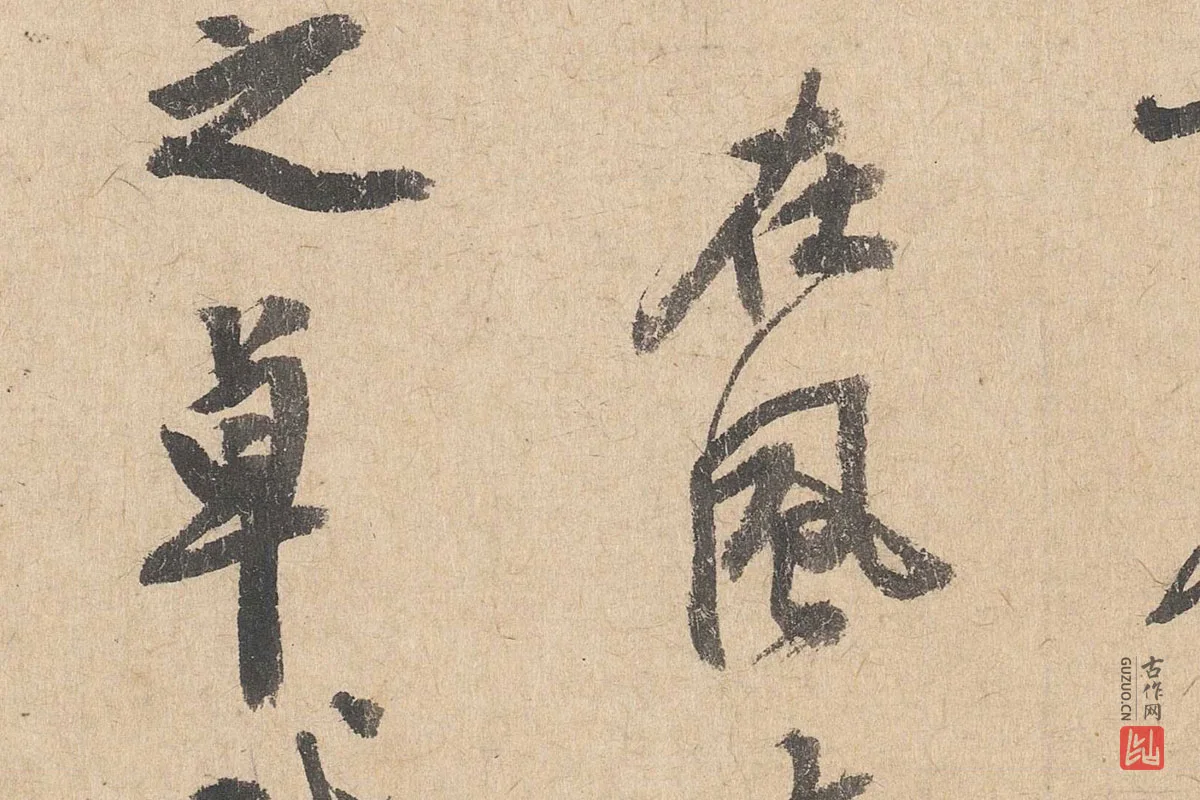 在風
之卓
古作网
GUZUO.CN